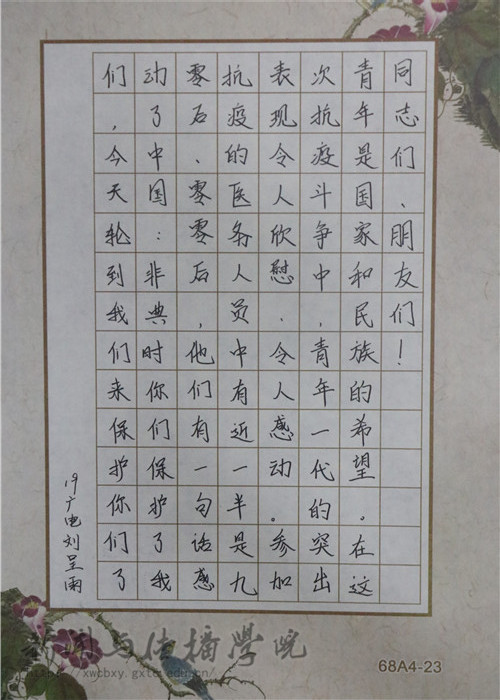 同志们、朋友们！
青年是国家和民族的希望。在这
次抗疫斗争中，青年一代的突出
表现令人欣慰，令人感动。参加
抗疫的医务人员中有近一半是九
零后、零零后，他们有一句话感
动了中国：非典时你们保护了我
们，今天轮到我们来保护你们了
19广电刘呈雨
新闻与传播学院
http://xwcbxy.gxtc.edu.cn/
68A4-23